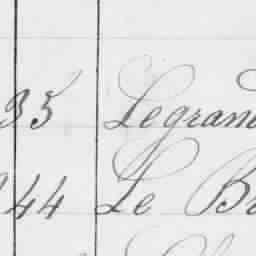 35 Legran
44 Le B